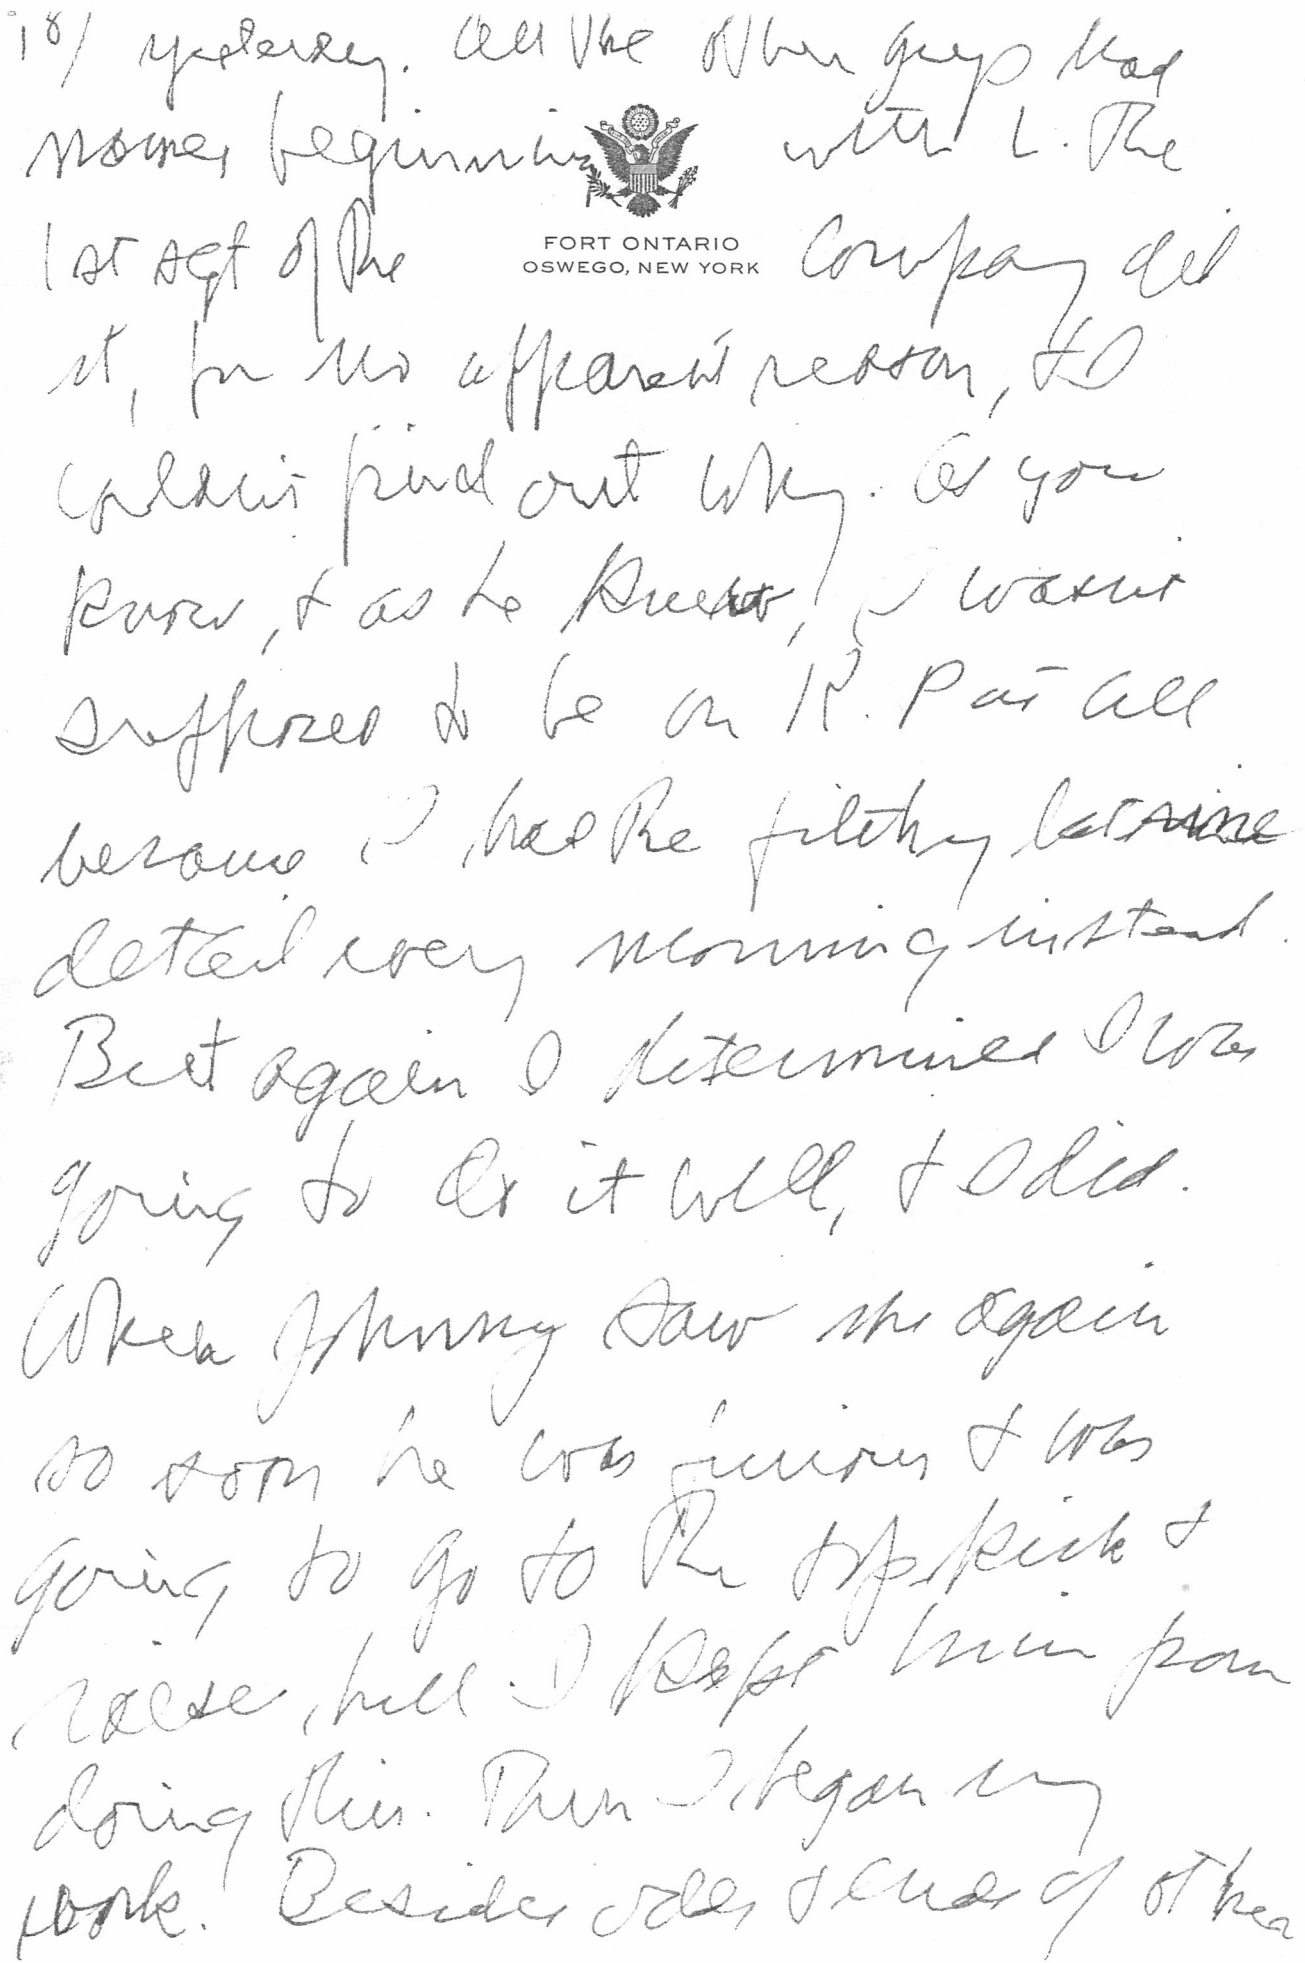 18/ yesterday. All the other guys had
names beginning with L. The
FORT ONTARIO
OSWEGO, NEW YORK
1st sgt of the Company did
it, for no apparent reason, & I
couldn't find out why. As you
know, & as he knew, I wasn't
supposed to be on K.P at all
because I had the filthy latrine
detail every morning instead.
But again I determined I was
going to do it well, & I did.
When Johnny saw me again
so soon he was furious & was
going to go to the top kick &
raise hell. I kept him from
doing this. Then I began my
work. Besides odds & ends of other